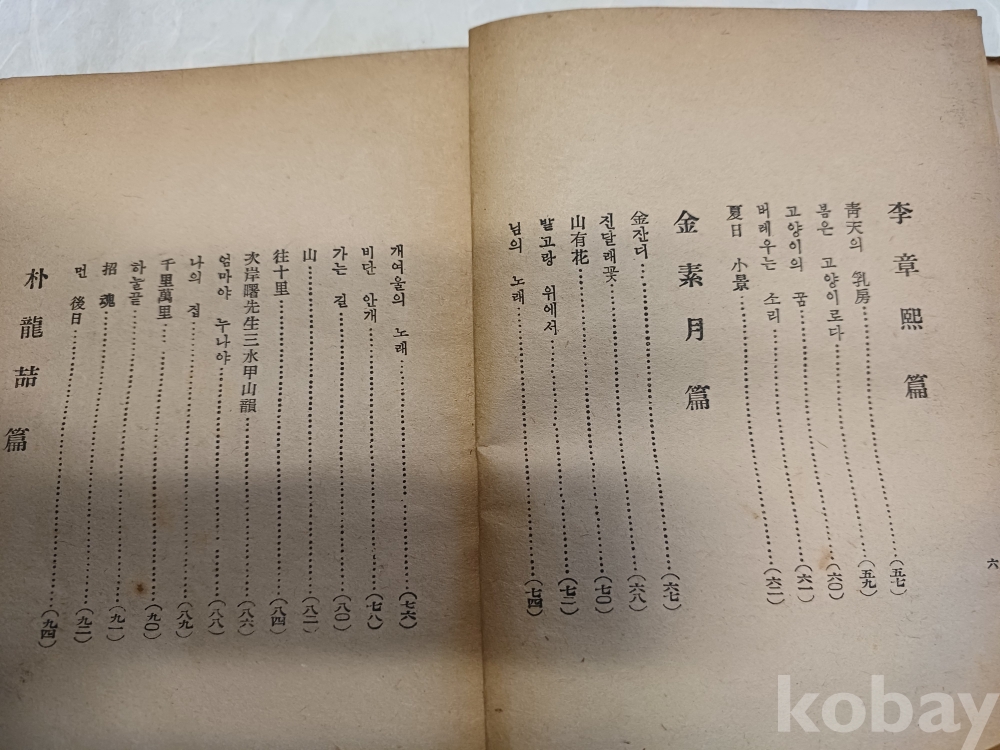 六
李章熙篇
靑天의 乳房……(五七)
봄은 고양이로다……(五九)
고양이의 꿈……(六〇)
버레우는 소리……(六一)
夏日 小景……(六二)
金素月篇
金잔디……(六七)
진달래꽃……(六八)
山有花……(七〇)
밭고랑 위에서……(七二)
님의 노래……(七四)
개여울의 노래……(七六)
비단 안개……(七八)
가는 길……(八〇)
山……(八二)
往十里……(八四)
次岸曙先生三水甲山韻……(八六)
엄마야 누나야……(八八)
나의 집……(八九)
千里萬里……(九〇)
하눌끝……(九一)
招魂……(九二)
먼 後日……(九四)
朴龍喆篇
kobay